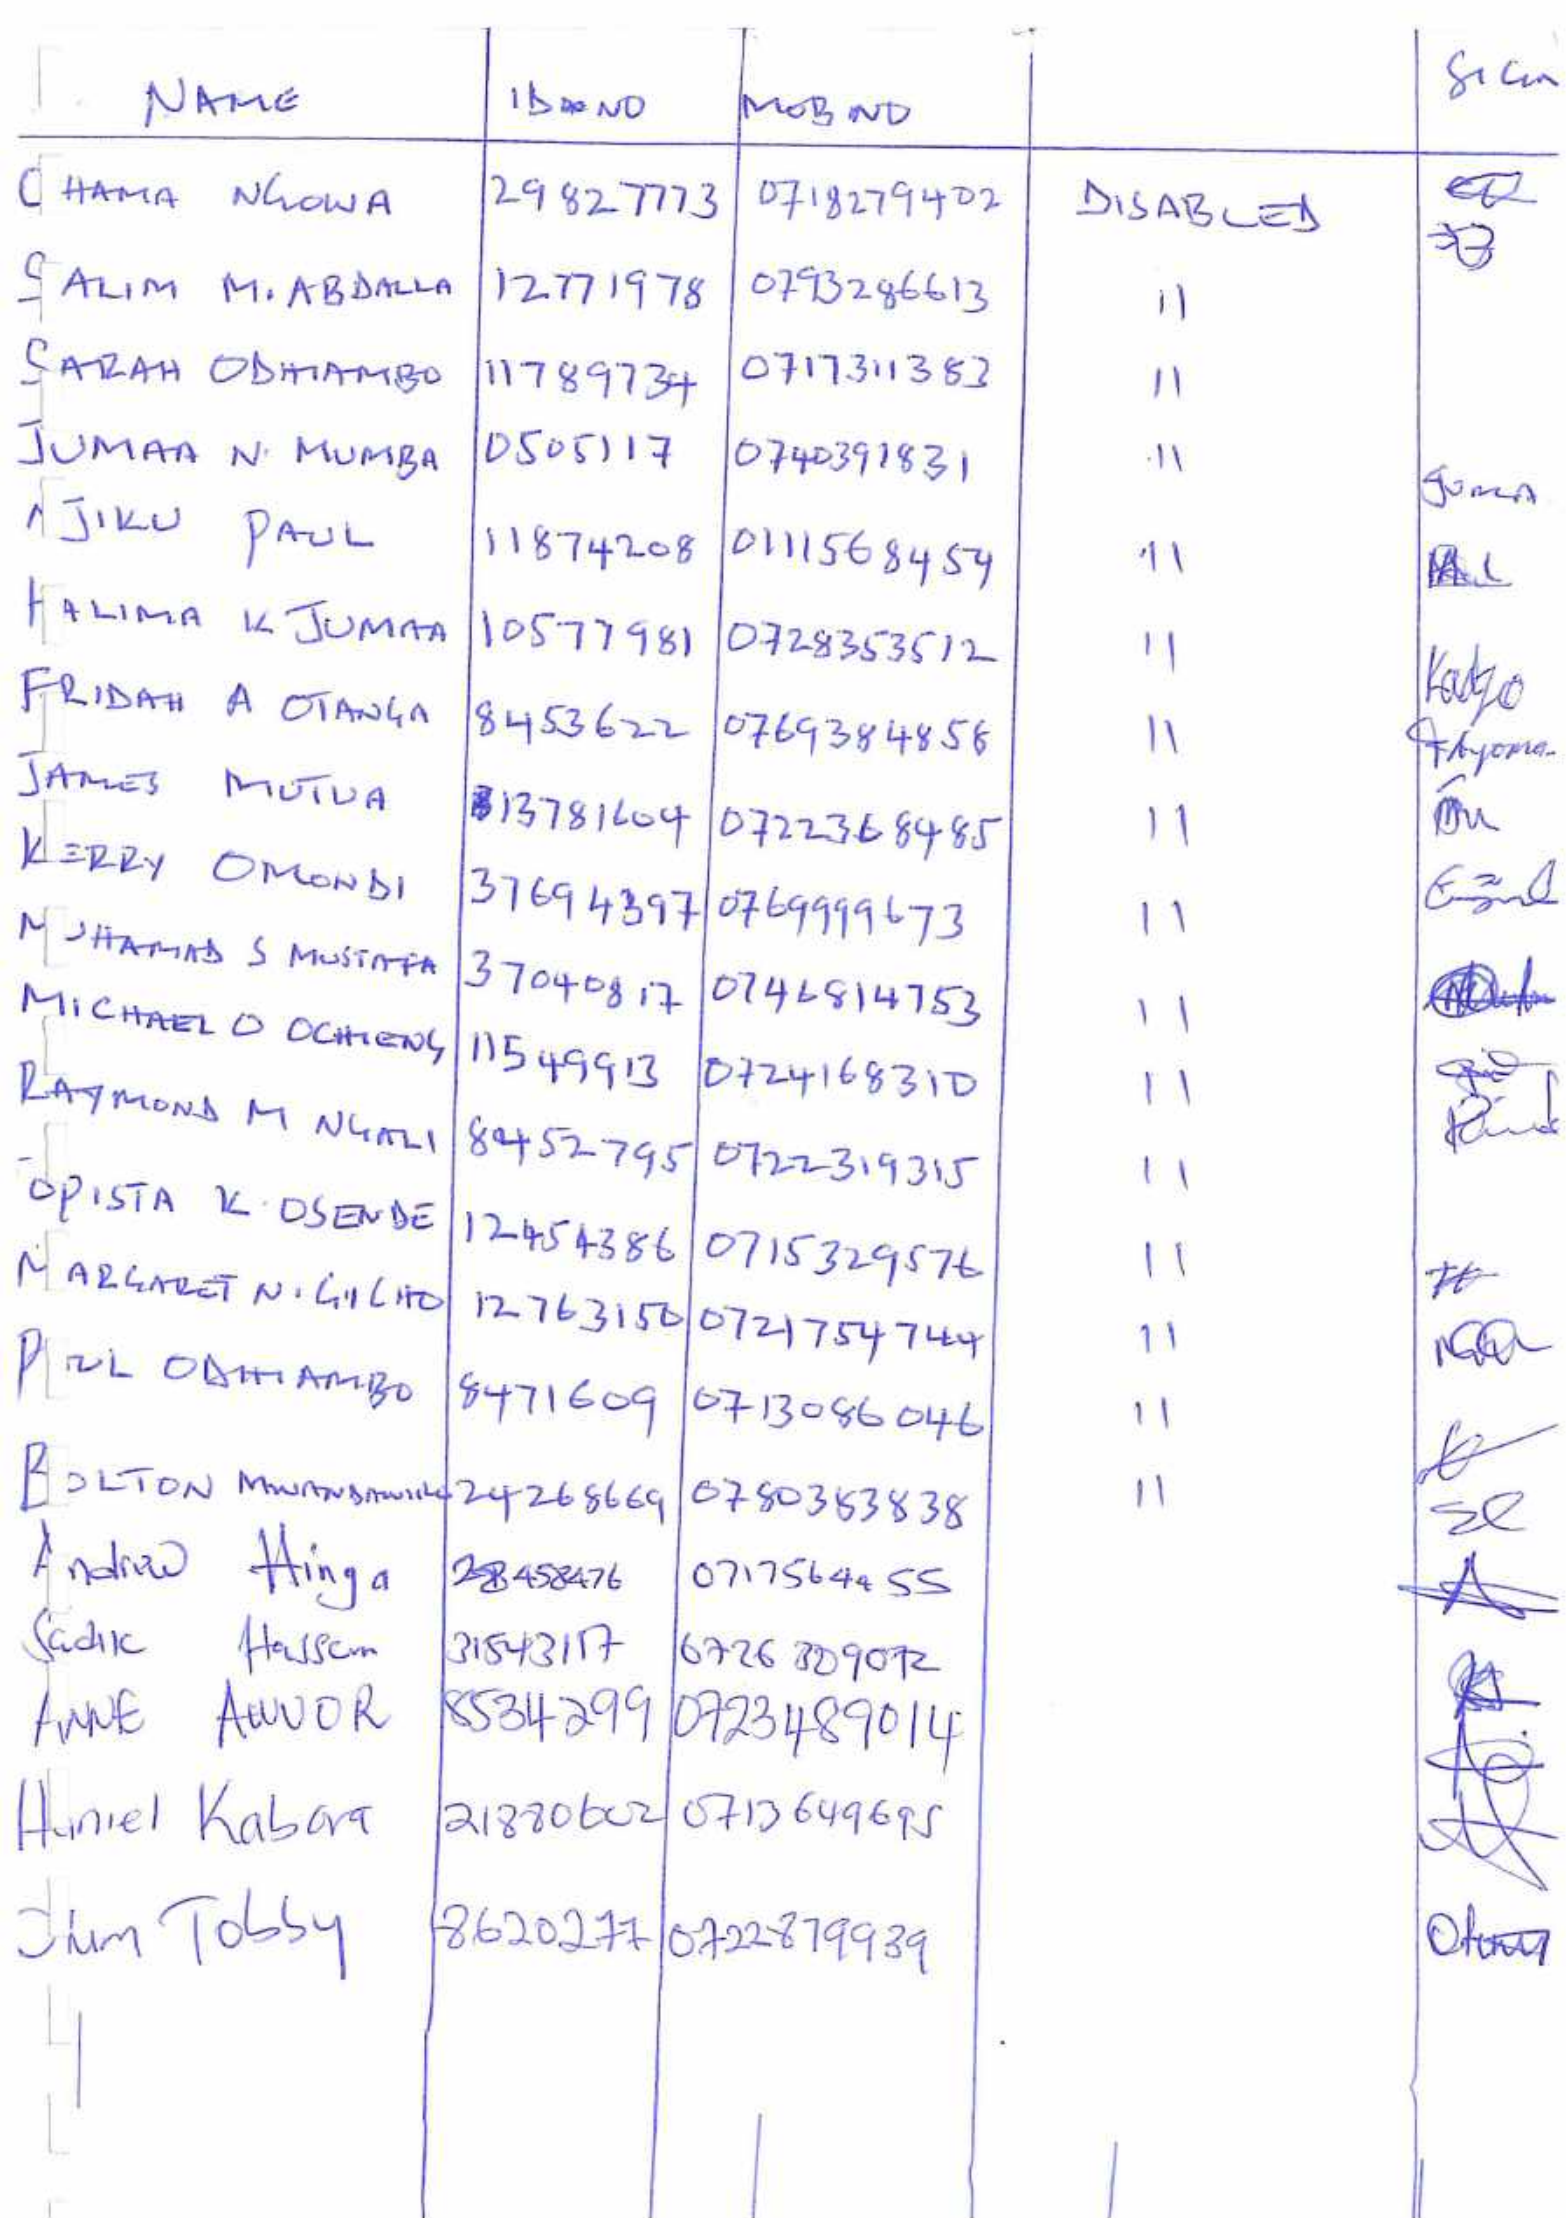 NAME ID NO MOB NO SIGN
CHAMA NGOWA 29827773 0718279402 DISABLED
SALIM M. ABDALLA 12771978 0793286613 11
SARAH ODHIAMBO 11789734 0717311383 11
JUMAA N. MUMBA 0505117 0740391831 11 Juma
NJIKU PAUL 11874208 0111568454 11
HALIMA K JUMAA 10577981 0728353512 11 Kadzo
FRIDAH A OTANGA 8453622 0769384858 11
JAMES MUTUA 13781604 0722368485 11
KERRY OMONDI 37694397 0769999673 11
MUHAMAD S MUSTAFA 37040817 0746814753 11
MICHAEL O OCHIENG 11549913 0724168310 11
RAYMOND M NGALI 8452795 0722319315 11
OPISTA K. OSENDE 12454386 0715329576 11
MARGARET N. 12763150 0721754744 11
PAUL ODHIAMBO 8471609 0713086046 11
BOLTON 24268669 0780383838 11
Andrew Hinga 28458476
Sadik Hassan 31543117
ANNE AWUOR 8534299 0723489014
Haniel Kabara 21880602 0713649695
Tobby 8620277 0722879939